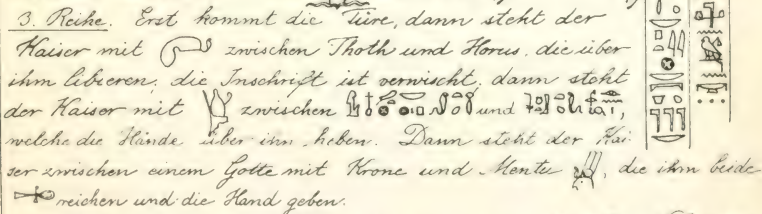 3. Reihe. Erst kommt die Türe, dann steht der
Kaiser mit zwischen Thoth und Horus, die über
ihm libieren; die Inschrift ist verwischt, dann steht
der Kaiser mit zwischen und ,
welche die Hände über ihn heben. Dann steht der Kai
ser zwischen einem Gotte mit Krone und Mente , die ihm beide
reichen und die Hand geben.